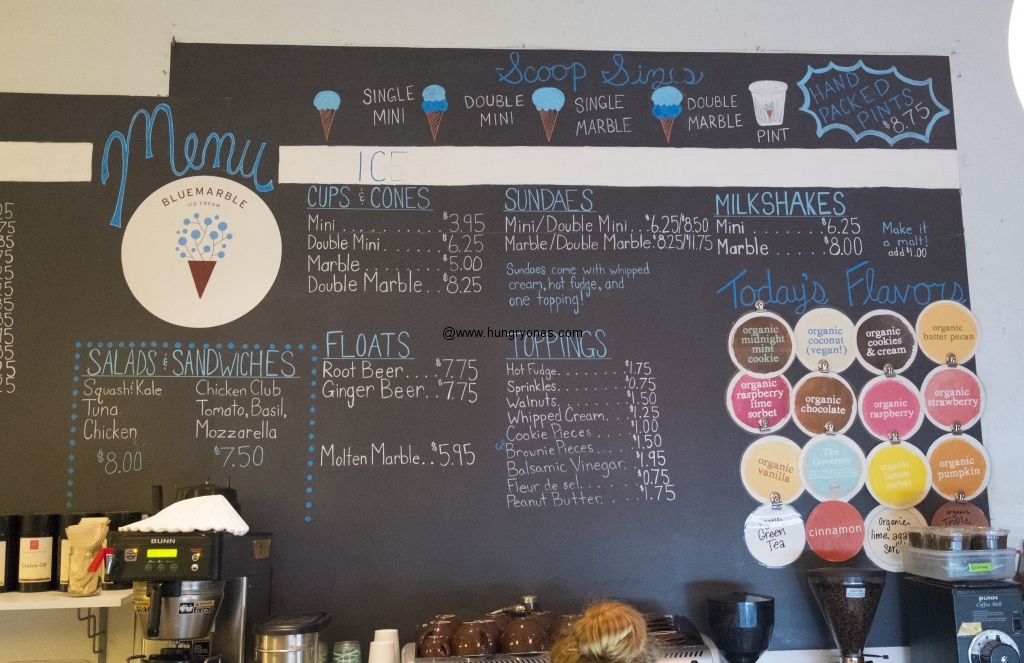 Scoop Sizes
SINGLE
MINI
DOUBLE
MINI
SINGLE
MARBLE
DOUBLE
MARBLE
PINT
HAND
PACKED
PINTS
$8.75
Menu
BLUEMARBLE
ICE CREAM
ICE
CUPS & CONES
Mini........$3.95
Double Mini....$6.25
Marble.......$5.00
Double Marble...$8.25
SUNDAES
Mini/Double Mini...$6.25/$8.50
Marble/Double Marble.$8.25/$11.75
Sundaes come with whipped
cream, hot fudge, and
one topping!
MILKSHAKES
Mini........$6.25
Marble......$8.00
Make it
a malt!
add $1.00
@www.hungryones.com
SALADS & SANDWICHES
Squash & Kale
Tuna
Chicken
$8.00
Chicken Club
Tomato, Basil,
Mozzarella
$7.50
FLOATS
Root Beer....$7.75
Ginger Beer...$7.75
Molten Marble..$5.95
TOPPINGS
Hot Fudge.......$1.75
Sprinkles.......$0.75
Walnuts.......$1.50
Whipped Cream....$1.25
Cookie Pieces....$1.00
Brownie Pieces....$1.50
Balsamic Vinegar.$1.95
Fleur de sel.....$0.75
Peanut Butter....$1.75
Today's Flavors
organic
midnight
mint
cookie
organic
coconut
(vegan!)
organic
cookies
& cream
organic
butter pecan
organic
raspberry
lime
sorbet
organic
chocolate
organic
raspberry
organic
strawberry
organic
vanilla
The
Governor
organic
lemon
sorbet
organic
pumpkin
organic
Green
Tea
cinnamon
organic
lime, aga
sor
organic
Triple
BUNN
BUNN